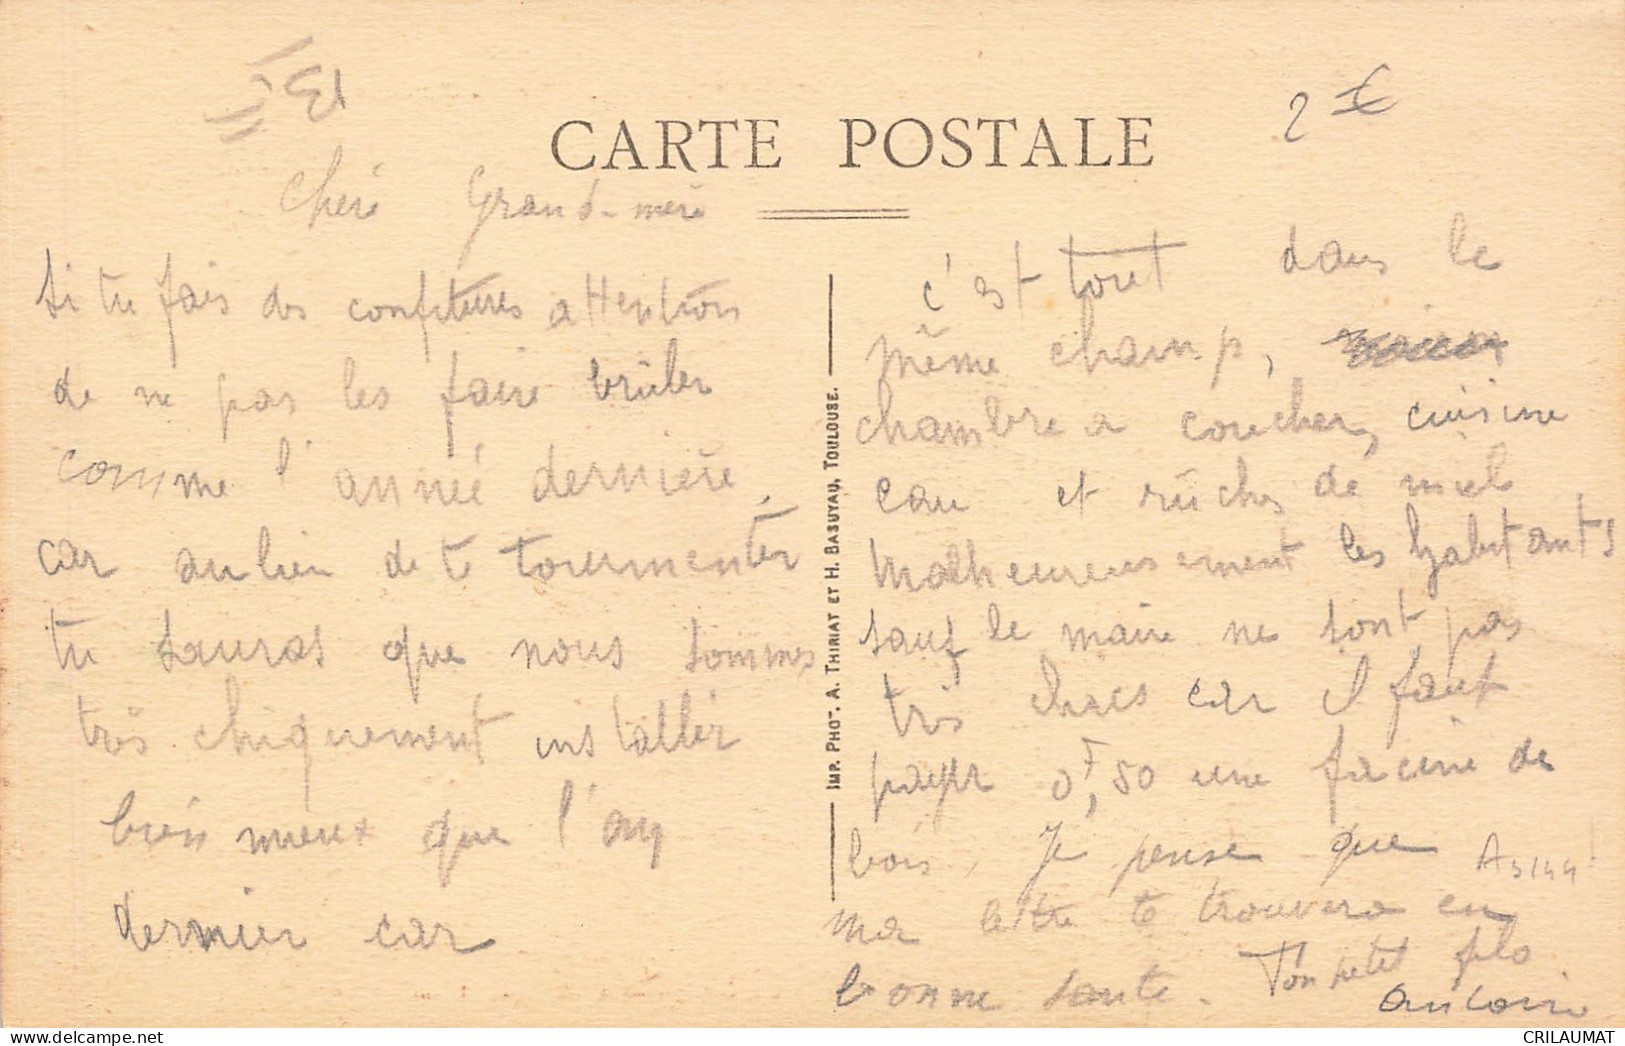 2 €
CARTE POSTALE
Cheré Grand-mère
Si tu fais des confitures attention
de ne pas les faire brûler
comme l'année dernière,
car au lieu de te tourmenter
tu sauras que nous sommes
très chiquement installer
bien mieux que l'an
dernier car
IMP. PHOT. A. THIRIAT ET H. BASUYAU, TOULOUSE.
c'est tout dans le
même champ,
chambre a coucher, cuisine
eau et rûches de miel
Malheureusement les habitants
sauf le maire ne sont pas
très car il faut
payer 0F,50 une de
bois. Je pense que
ma lettre te trouvera en
bonne santé. Ton petit fils
Antoine
CRILAUMAT